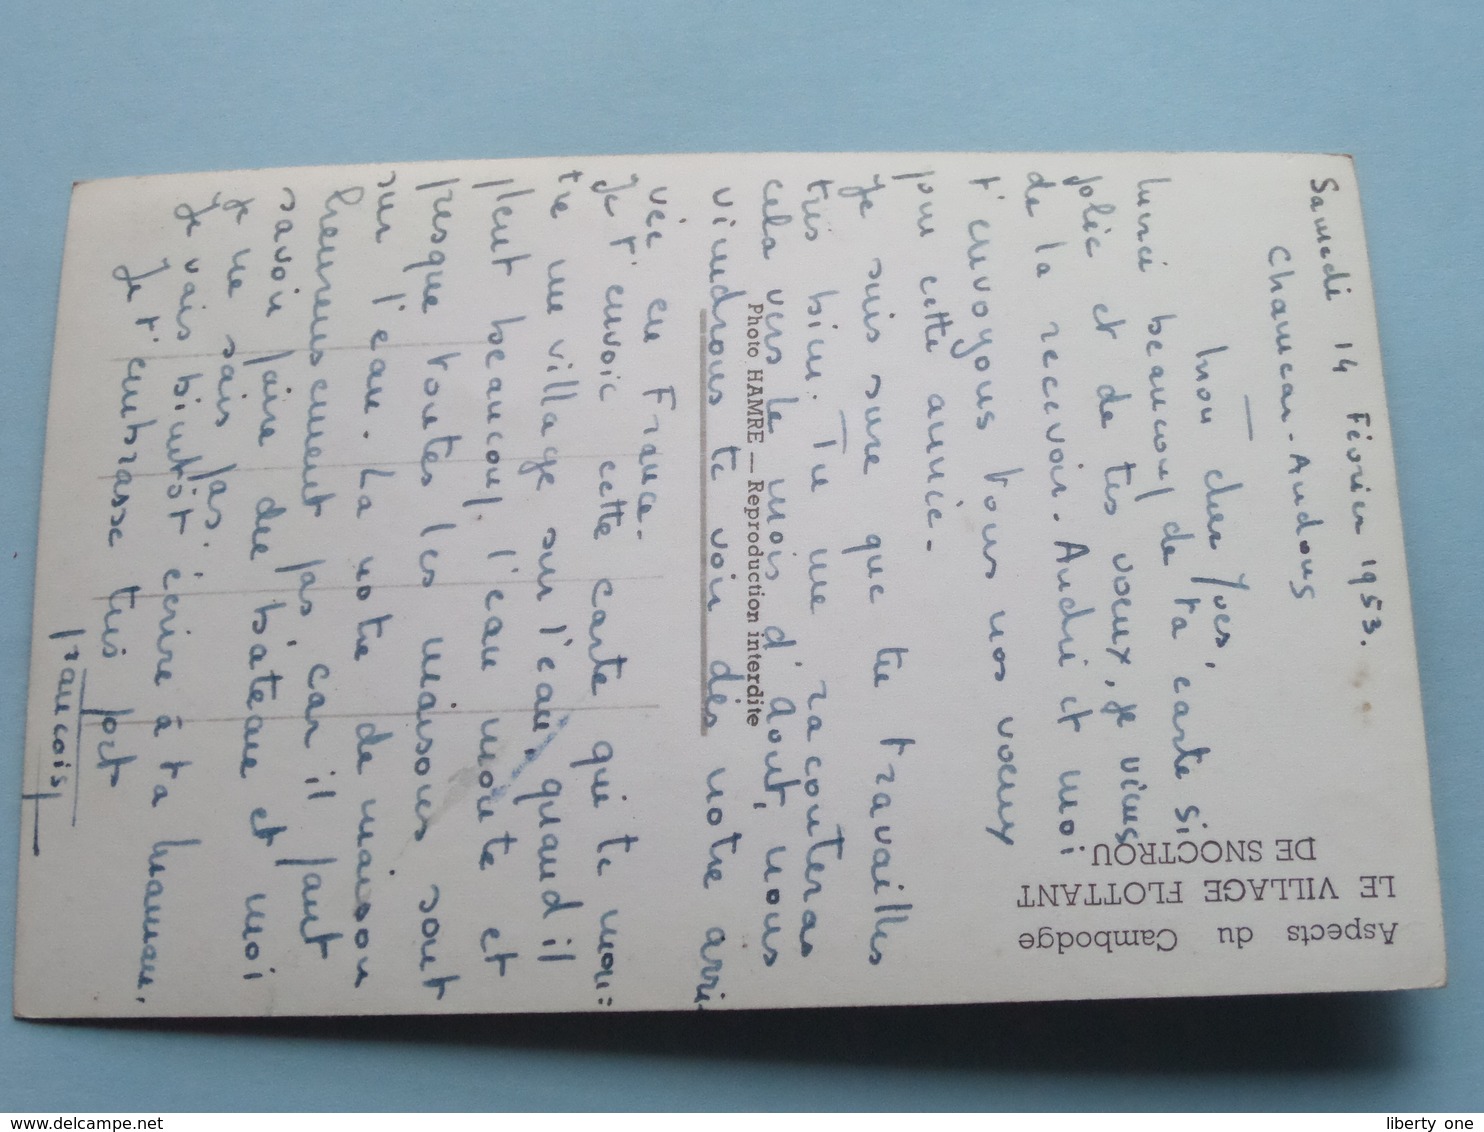 Samedi 14 Février 1953.
Chamcar-Andong
Mon cher Yves,
Merci beaucoup de ta carte si
jolie et de tes voeux, je viens
de la recevoir. André et moi
t'envoyons tous nos voeux
pour cette année.
Je suis sure que tu travailles
très bien. Tu me raconteras
cela vers le mois d'août, nous
viendrons te voir dès notre arri
vée en France.
Je t'envoie cette carte qui te mon=
tre un village sur l'eau, quand il
pleut beaucoup, l'eau monte et
presque toutes les maisons sont
sur l'eau. La notre de maison
heureusement pas car il faut
savoir faire du bâteau et moi
je ne sais pas.
Je vais bientôt écrire à ta maman.
Je t'embrasse très fort
Francoise
Aspects du Cambodge
LE VILLAGE FLOTTANT
DE SNOCTROU
Photo HAMRE — Reproduction interdite
liberty one